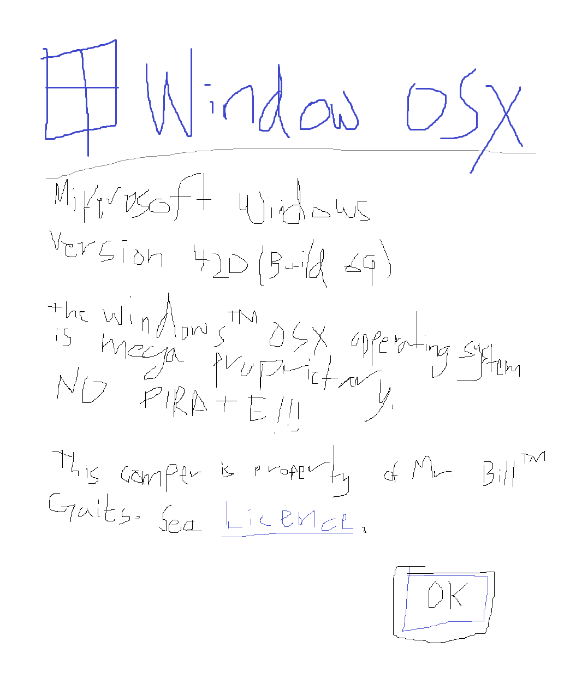 Window OSX
Mikrosoft Windows
Version 42D (Build 69)
the Windows™ OSX opperating system
is mega proprictary.
NO PIRATE!!!
This comper is property of Mr Bill™
Gaits. Sea Licence.
OK